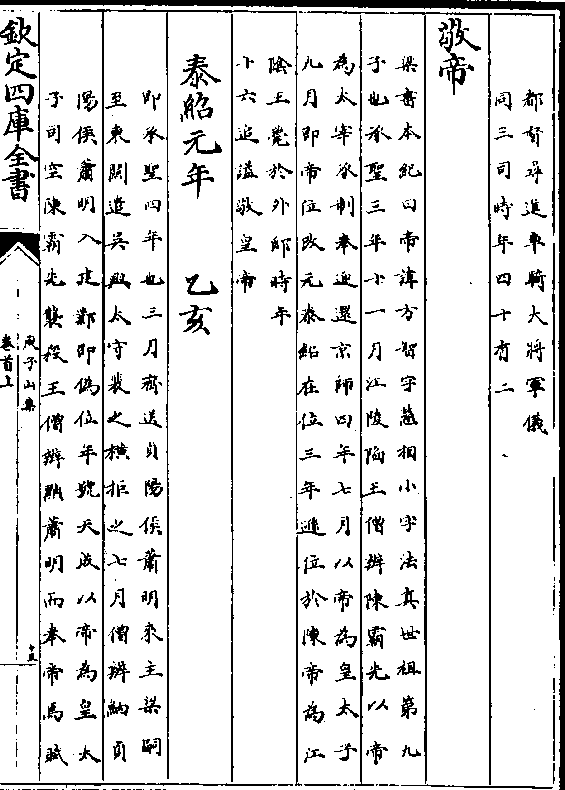 都督尋進車騎大將軍儀
同三司時年四十有二
敬帝
梁書本紀曰帝諱方智字慧相小字法真世祖第九
子也承聖三年十一月江陵陷王僧辯陳霸先以帝
為太宰承制奉迎還京師四年七月以帝為皇太子
九月即帝位改元泰紹在位三年遜位於陳帝為江
陰王薨於外邸時年
十六追諡敬皇帝
泰紹元年 乙亥
即承聖四年也三月齊送貞陽侯蕭明來主梁嗣
至東關遣吳興太守裴之橫拒之七月僧辯納貞
陽侯蕭明入建鄴即偽位年號天成以帝為皇太
子司空陳霸先襲殺王僧辯黜蕭明而奉帝焉賦
欽定四庫全書
庾子山集
卷首上
十五